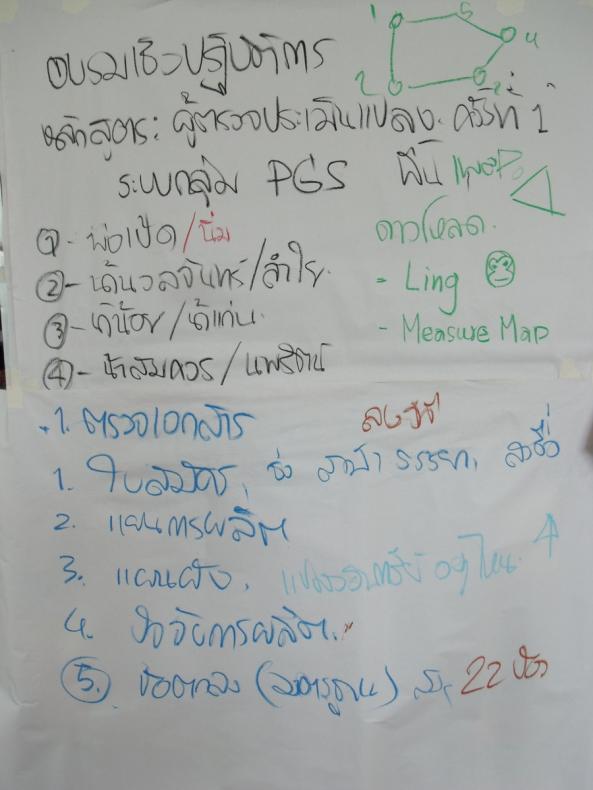 1 5 4 2 3
อบรมเชิงปฏิบัติการ
หลักสูตร: ผู้ตรวจประเมินแปลง ครั้งที่ 1
ระบบกลุ่ม PGS
① - พ่อเป็ด/นิ่ม
② - น้านวลจันทร์/ลำไย
③ - น้าน้อย/น้าแก่น
④ - น้าสมควร/
ดาวโหลด
- Ling
- Measure Map
1. ตรวจเอกสาร
1. ใบสมัคร, ชื่อ สามี ภรรยา,
2. แผนการผลิต
3. แผนผัง, แปลงอินทรีย์ อยู่ไหน
4. ปัจจัยการผลิต
5. ข้อตกลง (มาตรฐาน) 22 ข้อ